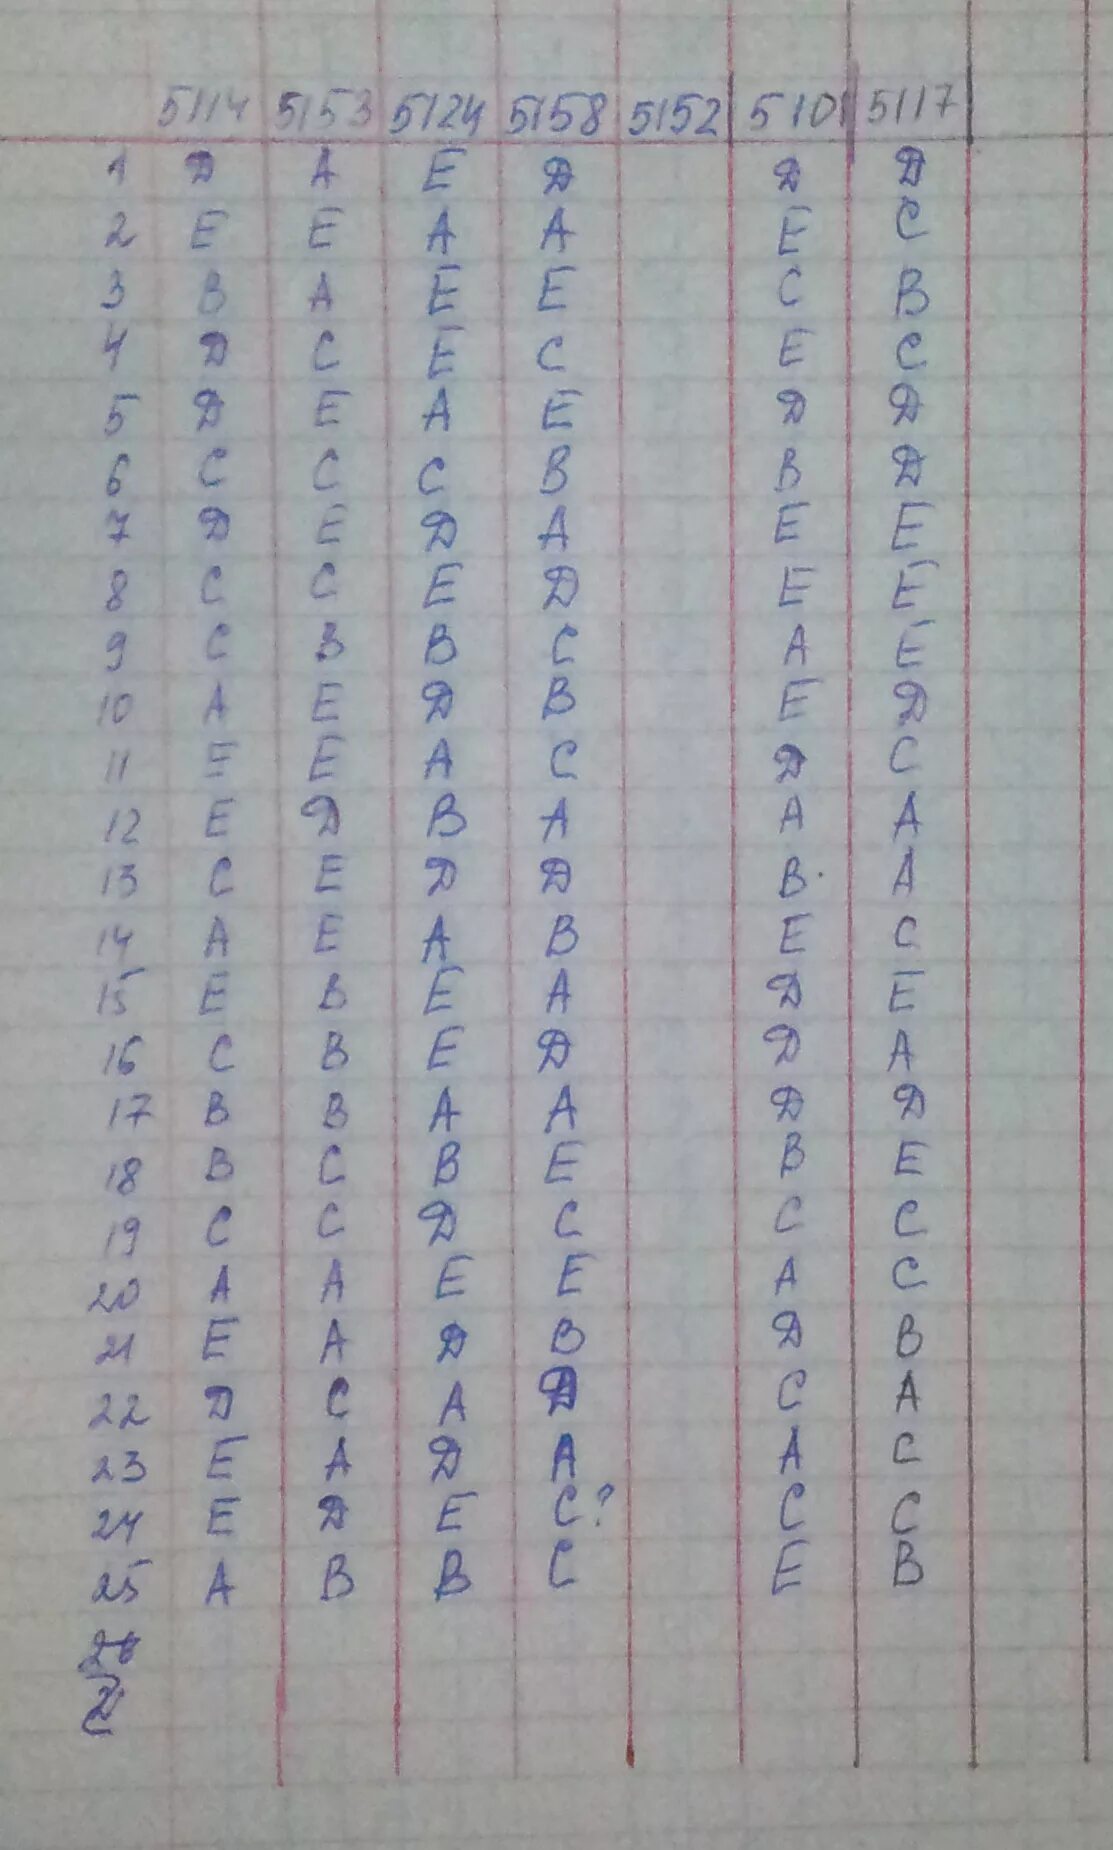 5114 5153 5124 5158 5152 5101 5117
1 D A E D D D
2 E E A A E C
3 B A E E C B
4 D C E C E C
5 D E A E D D
6 C C C B B D
7 D E D A E E
8 C C E D E E
9 C B B C A E
10 A E D B E D
11 E E A C D C
12 E D B A A A
13 C E D D B A
14 A E A B E C
15 E B E A D E
16 C B E D D A
17 B B A A D D
18 B C B E B E
19 C C D C C C
20 A A E E A C
21 E A D B D B
22 D C A D C A
23 E A D A A C
24 E D E C? C C
25 A B B C E B
26